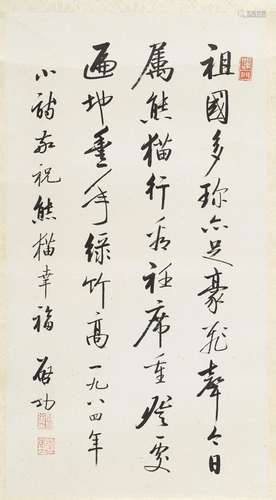 祖國多珍亦足豪飛聲今日
属熊猫行看衽席重登處
遍地重綠竹高一九八四年
小詩敬祝熊猫幸福 啓功